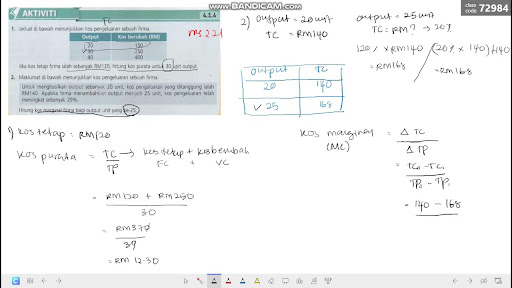 www.BANDICAM.com
class code 72984
AKTIVITI
4.1.4
1. Jadual di bawah menunjukkan kos pengeluaran sebuah firma.
TC
Output
Kos berubah (RM)
20
150
30
250
40
400
Jika kos tetap firma ialah sebanyak RM120. Hitung kos purata untuk 30 unit output.
2. Maklumat di bawah menunjukkan kos pengeluaran sebuah firma.
Untuk menghasilkan output sebanyak 20 unit, kos pengeluaran yang ditanggung ialah
RM140. Apabila firma menambahkan output menjadi 25 unit, kos pengeluaran telah
meningkat sebanyak 20%.
Hitung kos marginal firma bagi output unit yang ke-25.
ms 221
2) output = 20 unit
TC = RM140
output = 25 unit
TC = RM? → 20%
120% × RM140
= RM168
(20% × 140) + 140
= RM168
output
TC
20
140
✓ 25
168
1) Kos tetap = RM120
Kos purata = TC → kos tetap + kos berubah
TP
FC + VC
= RM120 + RM250
30
= RM370
= RM 12.30
Kos marginal = Δ TC
(MC)
Δ TP
= TC₀ - TC₁
TP₀ - TP₁
= 140 - 168